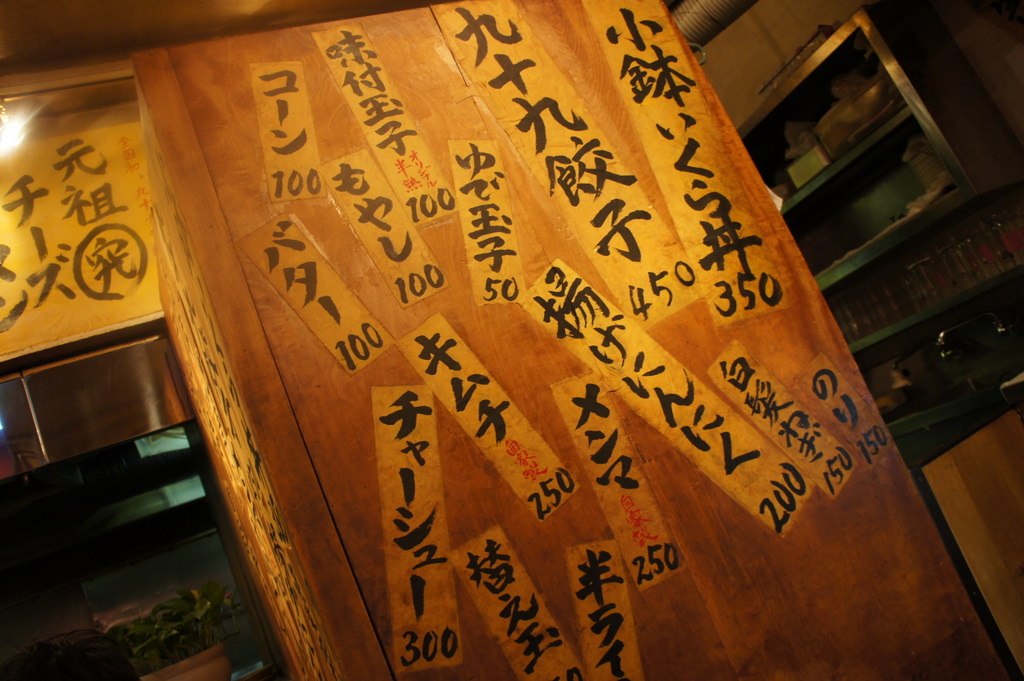 小鉢いくら丼 350
九十九餃子 450
味付玉子 オリジナル半熟 100
コーン 100
ゆで玉子 50
もやし 100
バター 100
揚げにんにく 200
のり 150
白髪ねぎ 150
キムチ 自家製 250
メンマ 自家製 250
チャーシュー 300
替え玉
半ライ
元祖
チーズ
究